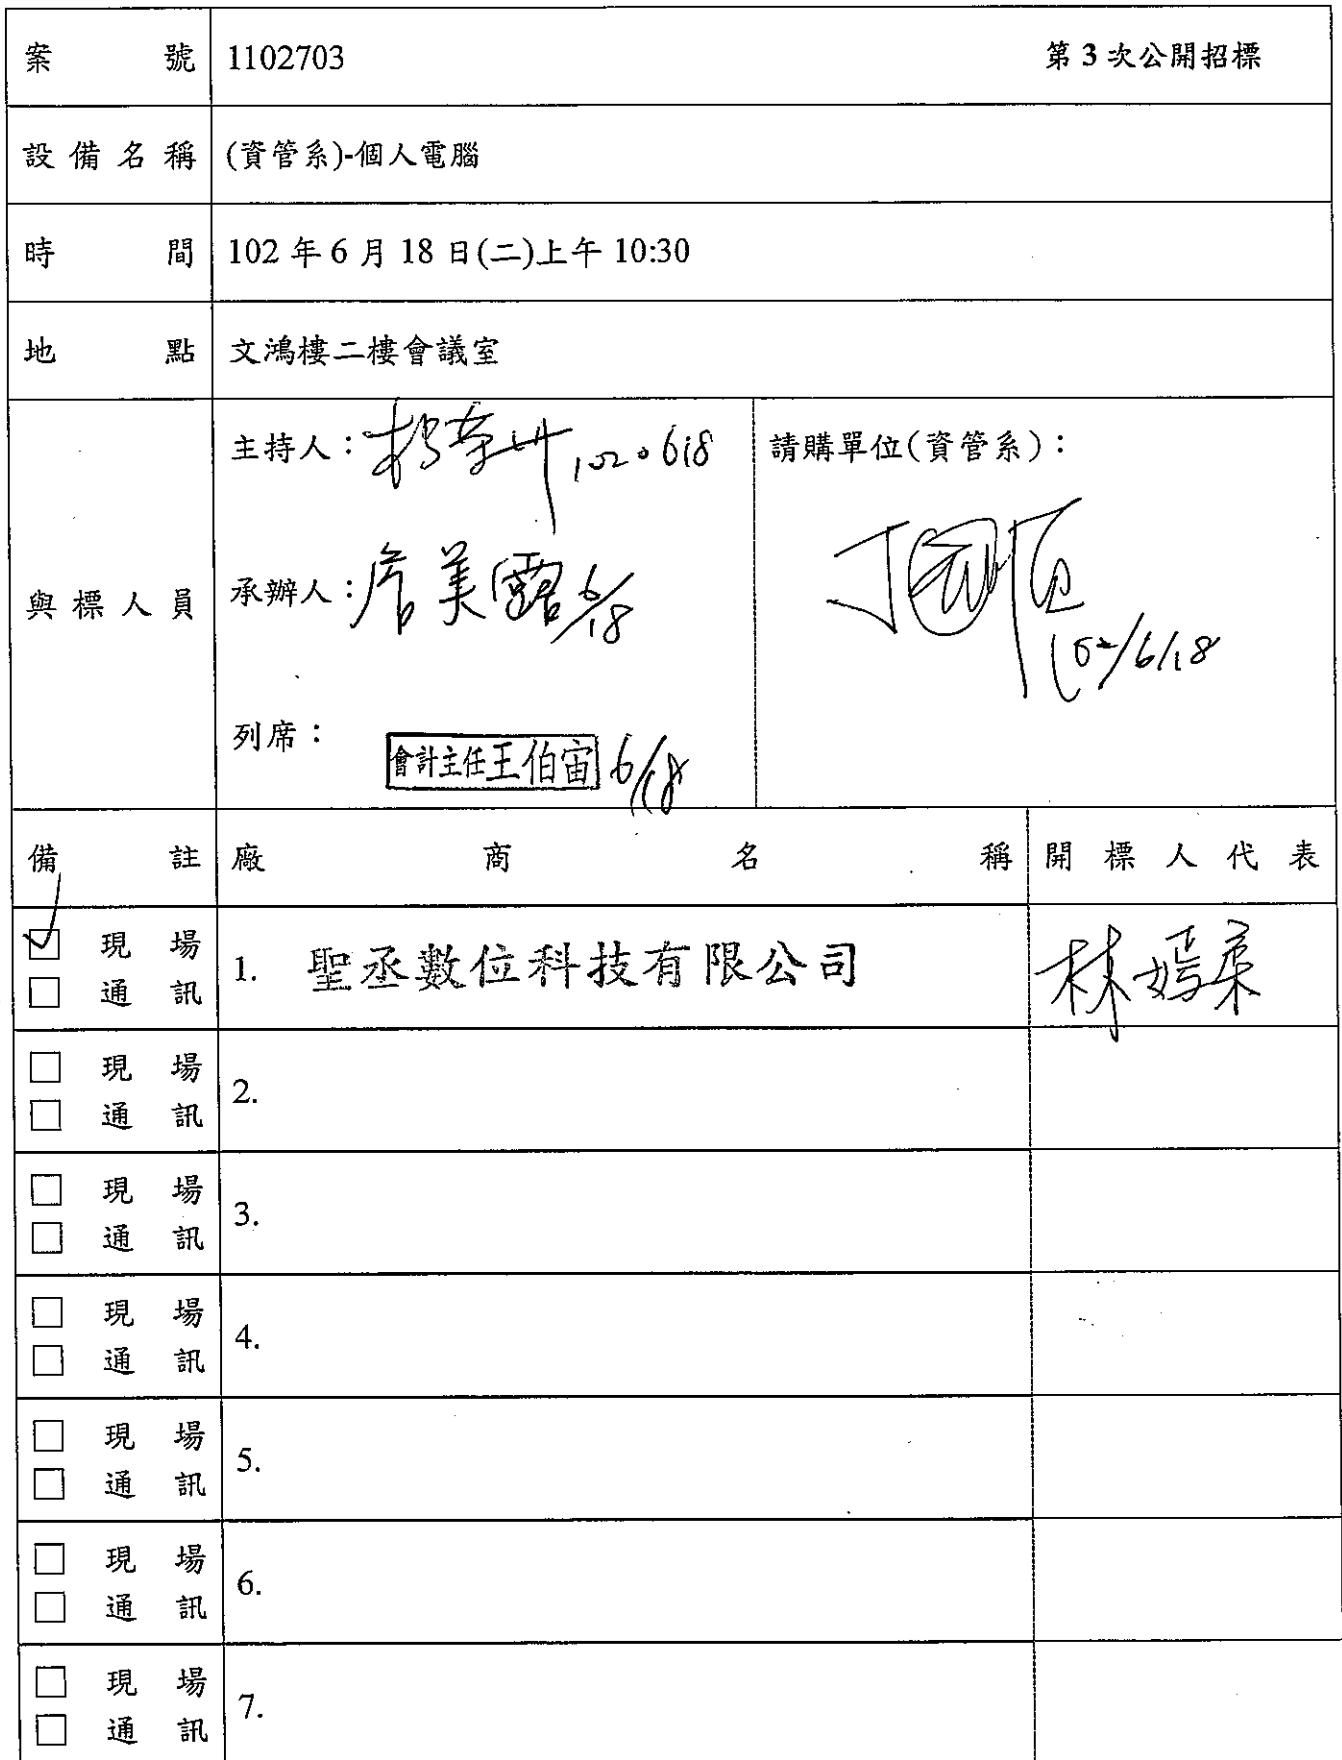 案號 1102703 第3次公開招標
設備名稱 (資管系)-個人電腦
時間 102年6月18日(二)上午10:30
地點 文鴻樓二樓會議室
與標人員
主持人： 102.06.18
承辦人：詹美露 6/18
列席：
會計主任王伯宙 6/18
請購單位(資管系)：
丁
102/6/18
備註 廠商名稱 開標人代表
現場
通訊
1. 聖丞數位科技有限公司 林嫣柔
現場
通訊
2.
現場
通訊
3.
現場
通訊
4.
現場
通訊
5.
現場
通訊
6.
現場
通訊
7.